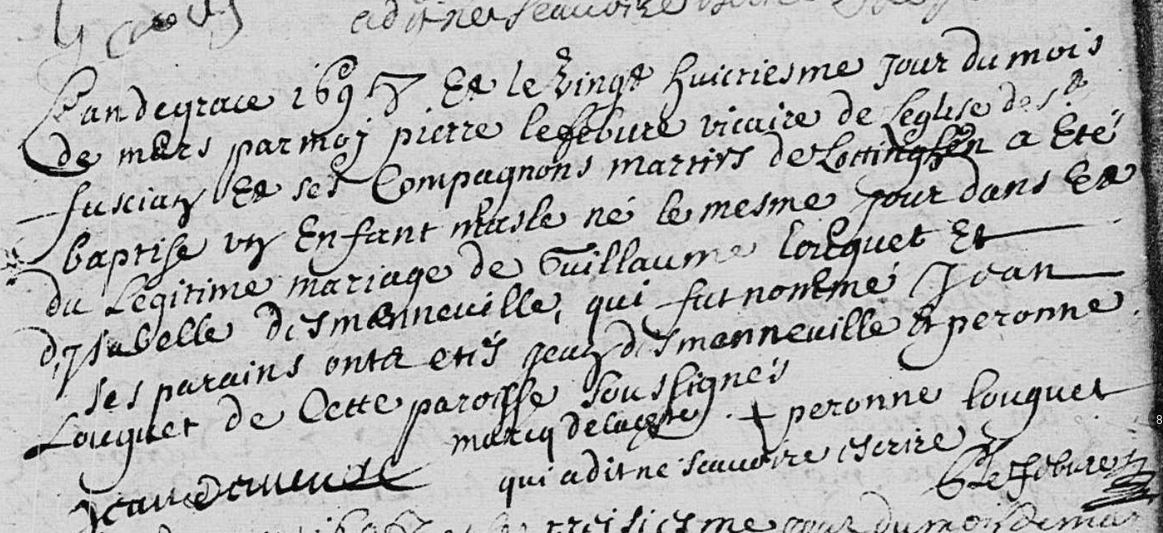 a dit ne scauoire
L'an de grace 1697 Et le vingt huictiesme Jour du mois
de mars par moj pierre lefebure vicaire de Leglise de st
fuscian Et ses Compagnons martirs de Lottinghen a Eté
baptise vn Enfant masle né le mesme Jour dans Et
du Legitime mariage de Guillaume louguet Et
d'ysabelle dismenneuille, qui fut nommé Jean
ses parains ont etés Jean dismenneuille Et peronne
Louguet de Cette paroisse soussignés
marcq de + peronne louguet
qui a dit ne scauoire escrire
P Lefebure
treisiesme Jour du mois de mar